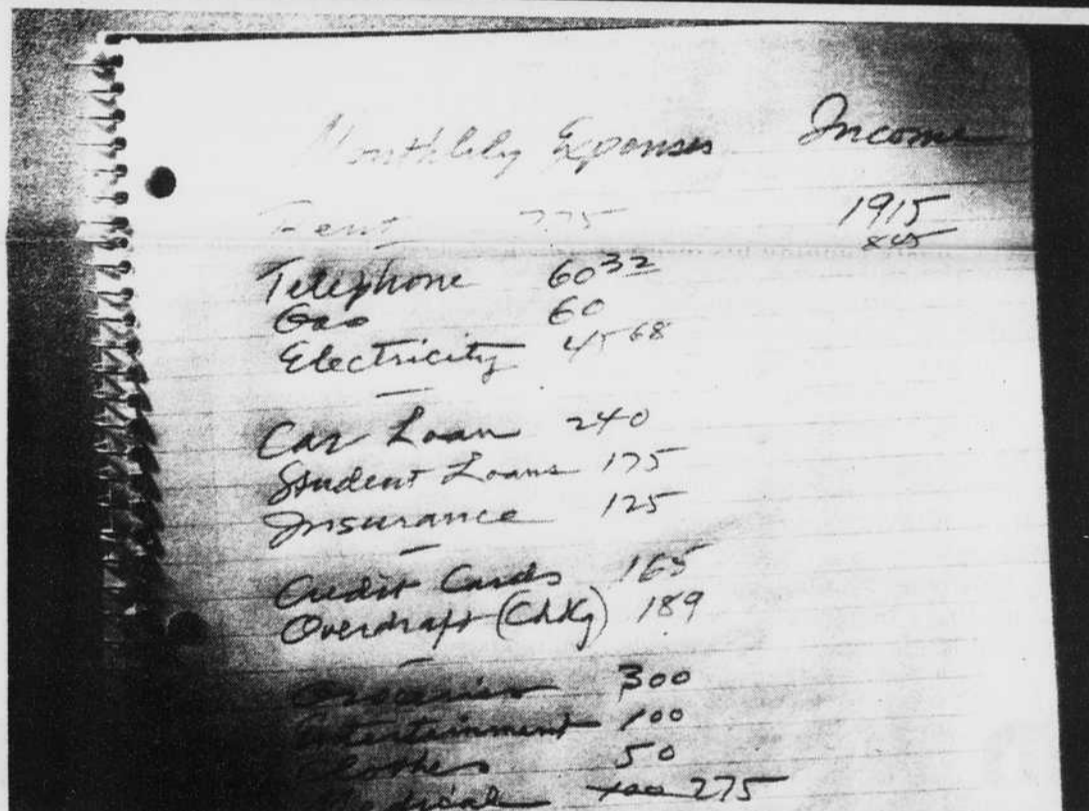 Monthlely Expenses Income
Rent 775 1915
Telephone 60 32
Gas 60
Electricity 45 68
Car Loan 240
Student Loans 175
Insurance 125
Credit Cards 165
Overdraft (Chkg) 189
Groceries 300
Entertainment 100
Clothes 50
Medical 275